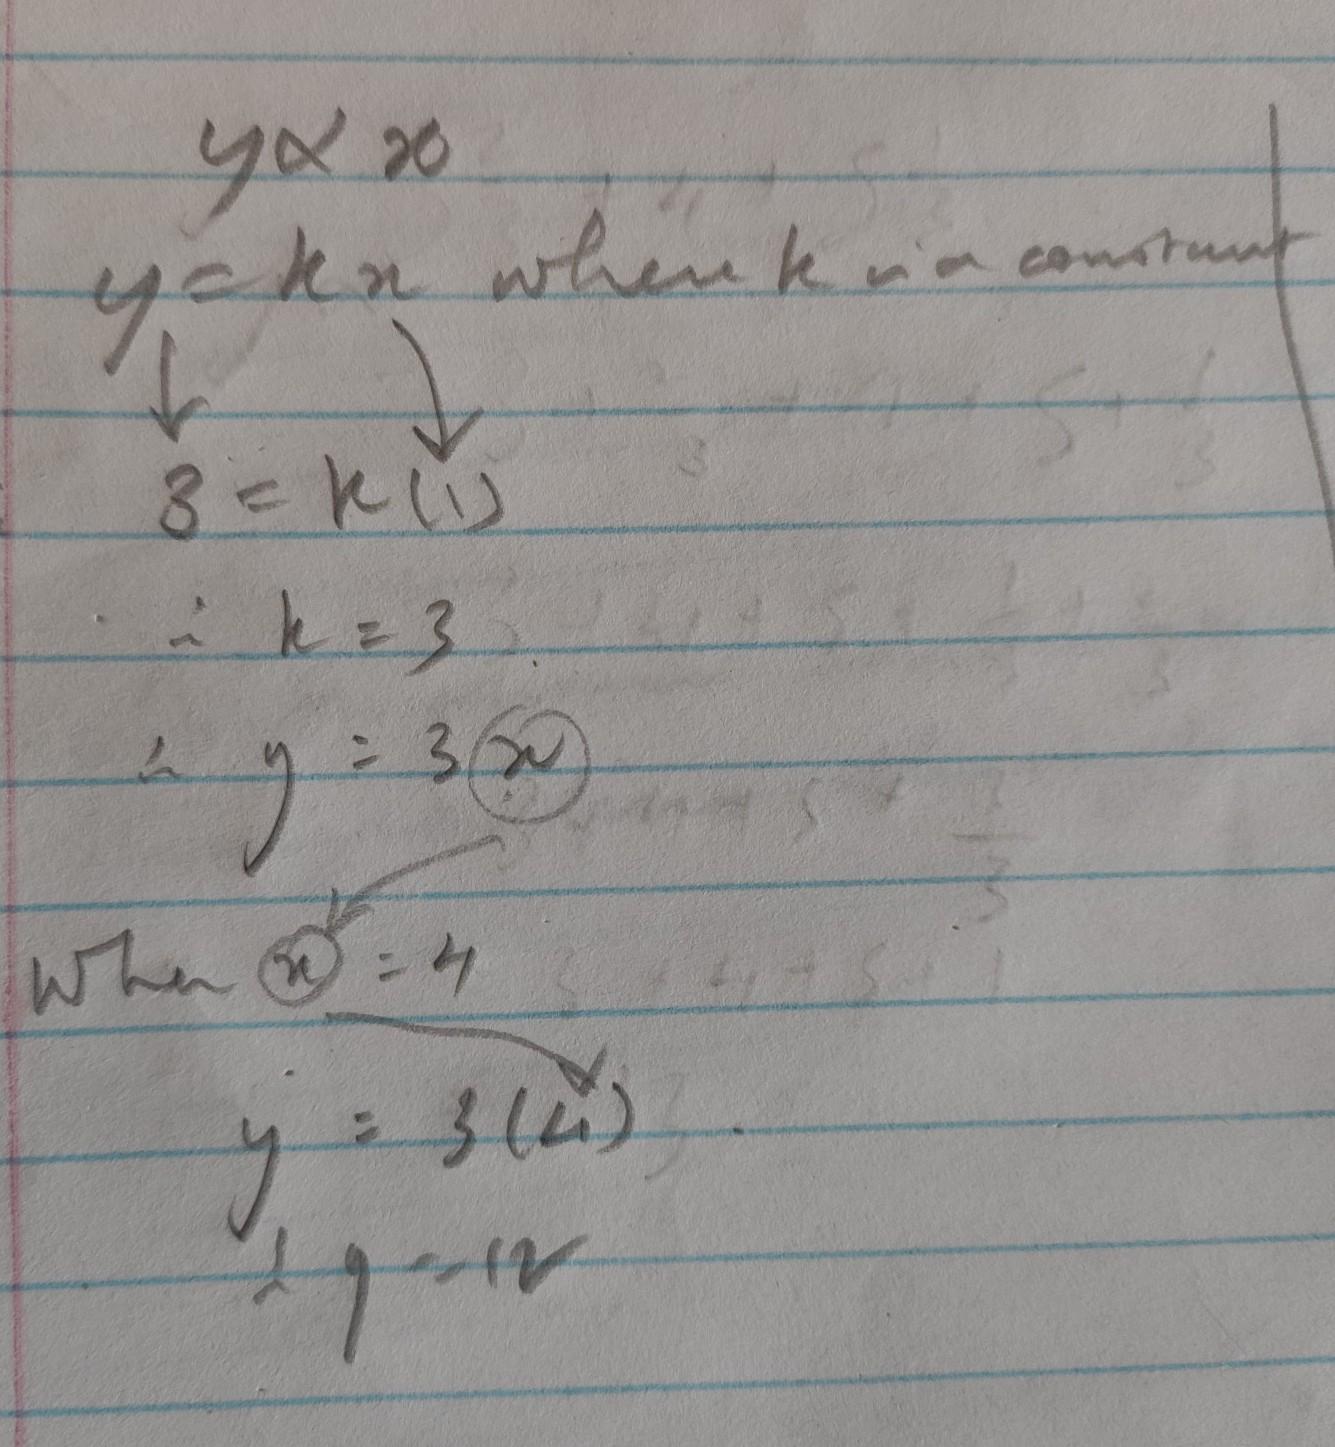 y ∝ x
y = kx where k is a constant
3 = k(1)
∴ k = 3
∴ y = 3x
When x = 4
y = 3(4)
∴ y = 12